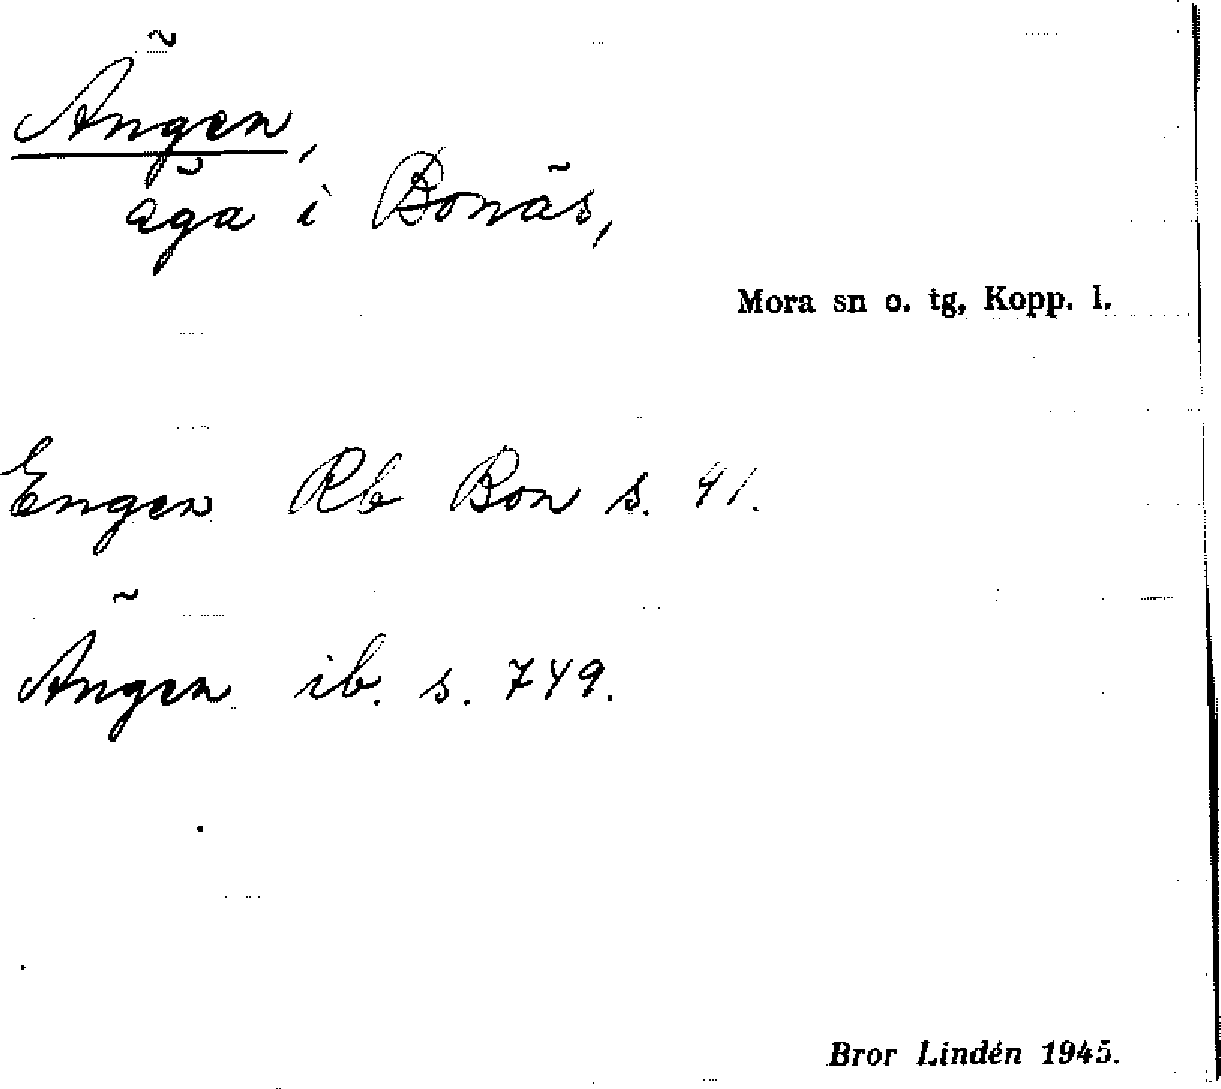 Ängen,
äga i Bonäs,
Mora sn o. tg, Kopp. l.
Engen Rb Bon s. 41.
Ängen ib. s. 749.
Bror Lindén 1945.